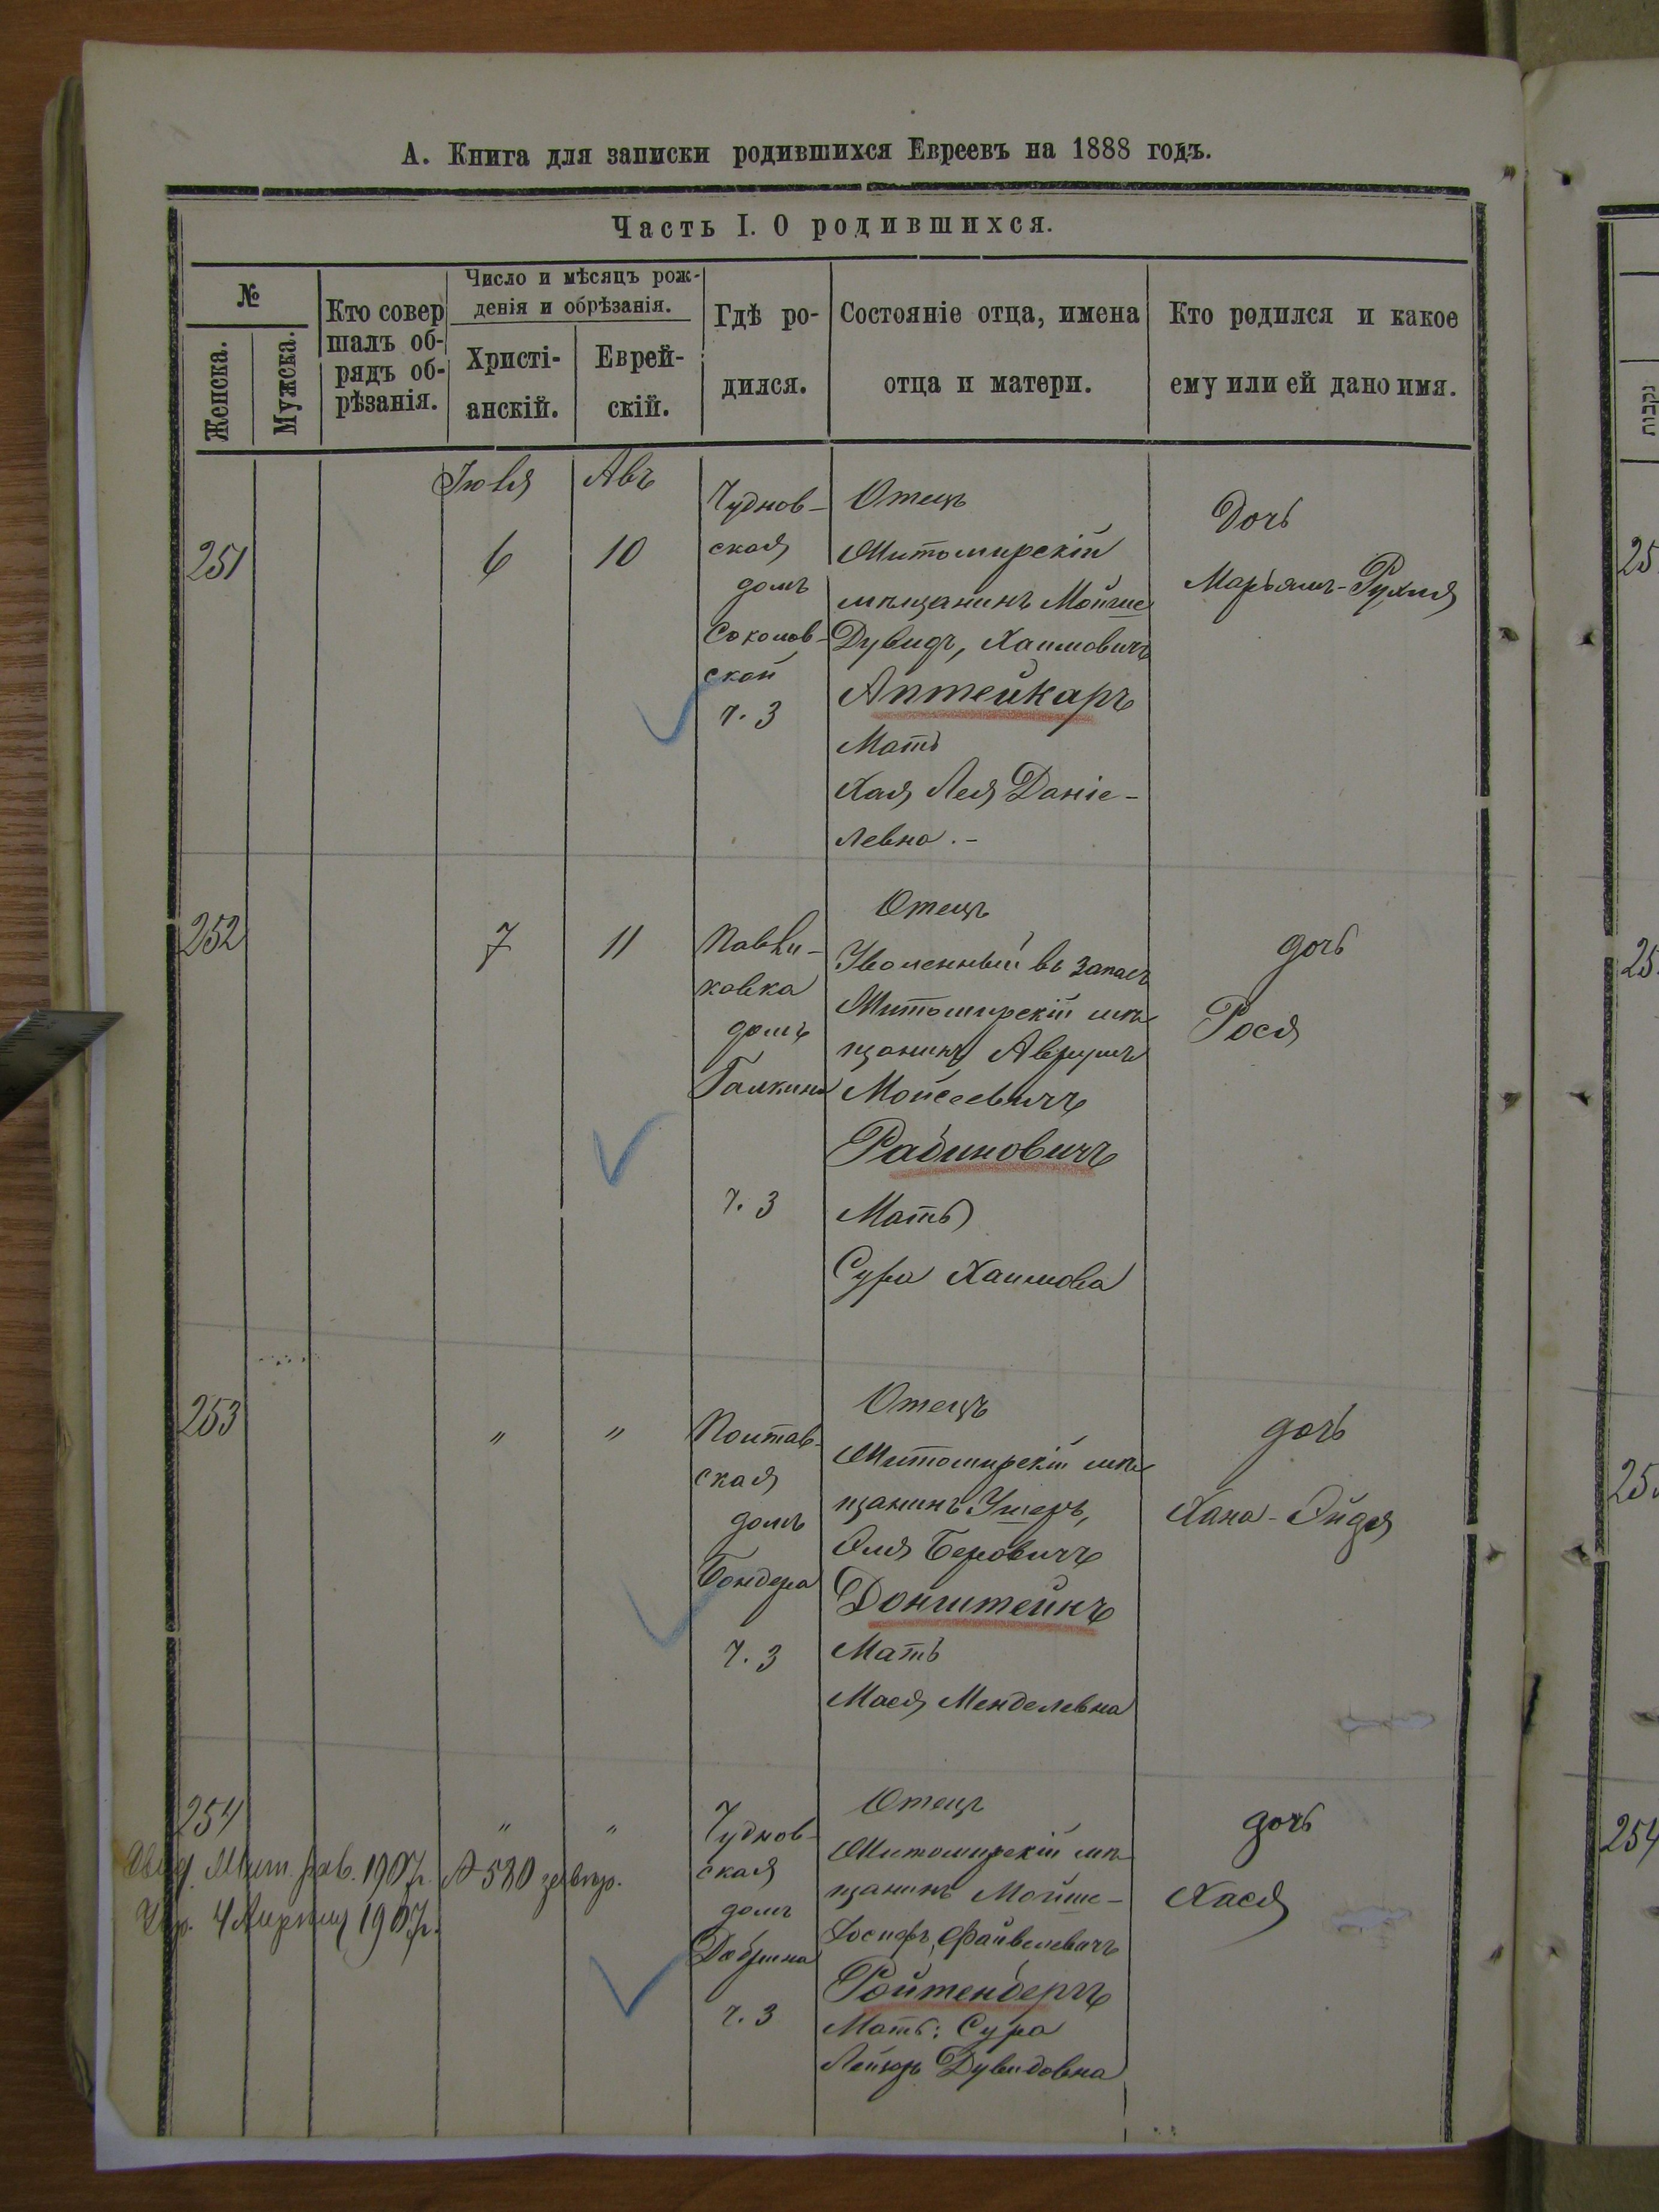 А. Книга для записки родившихся Евреевъ на 1888 годъ.
Часть I. О родившихся.
№
Женска.
Мужска.
Кто совер
шалъ об-
рядъ об-
рѣзанія.
Число и мѣсяцъ рож-
денія и обрѣзанія.
Христі-
анскій.
Еврей-
скій.
Гдѣ ро-
дился.
Состояніе отца, имена
отца и матери.
Кто родился и какое
ему или ей дано имя.
251
Іюля
6
Авъ
10
Чуднов-
ская
домъ
Соколов-
ской
ч. 3
Отецъ
Житомирскій
мѣщанинъ Мойше
Дувидъ, Хаимовичъ
Аптейкаръ
Мать
Хая Лея Даніе-
левна.-
Дочь
Марьямъ-Рухля
252
7
11
Павли-
ковка
домъ
Галкина
ч. 3
Отецъ
Уволенный въ запасъ
Житомирскій мѣ
щанинъ Аврумъ
Мойсеевичъ
Рабиновичъ
Мать
Сура Хаимова
дочь
Рося
253
"
"
Полтав-
ская
домъ
Бондера
ч. 3
Отецъ
Житомирскій мѣ
щанинъ Ушеръ,
Эля Беровичъ
Донштейнъ
Мать
Мася Менделевна
дочь
Хана-Эйдя
254
"
"
Чуднов-
ская
домъ
Добрина
ч. 3
Отецъ
Житомирскій мѣ
щанинъ Мойше-
Іосифъ Файвелевичъ
Ройтенберъ
Мать: Сура
Лейзоръ Дувидовна
дочь
Хася
Жит. рав. 1907г. № 580
4 1907г.
נקבות
25
25
25
254